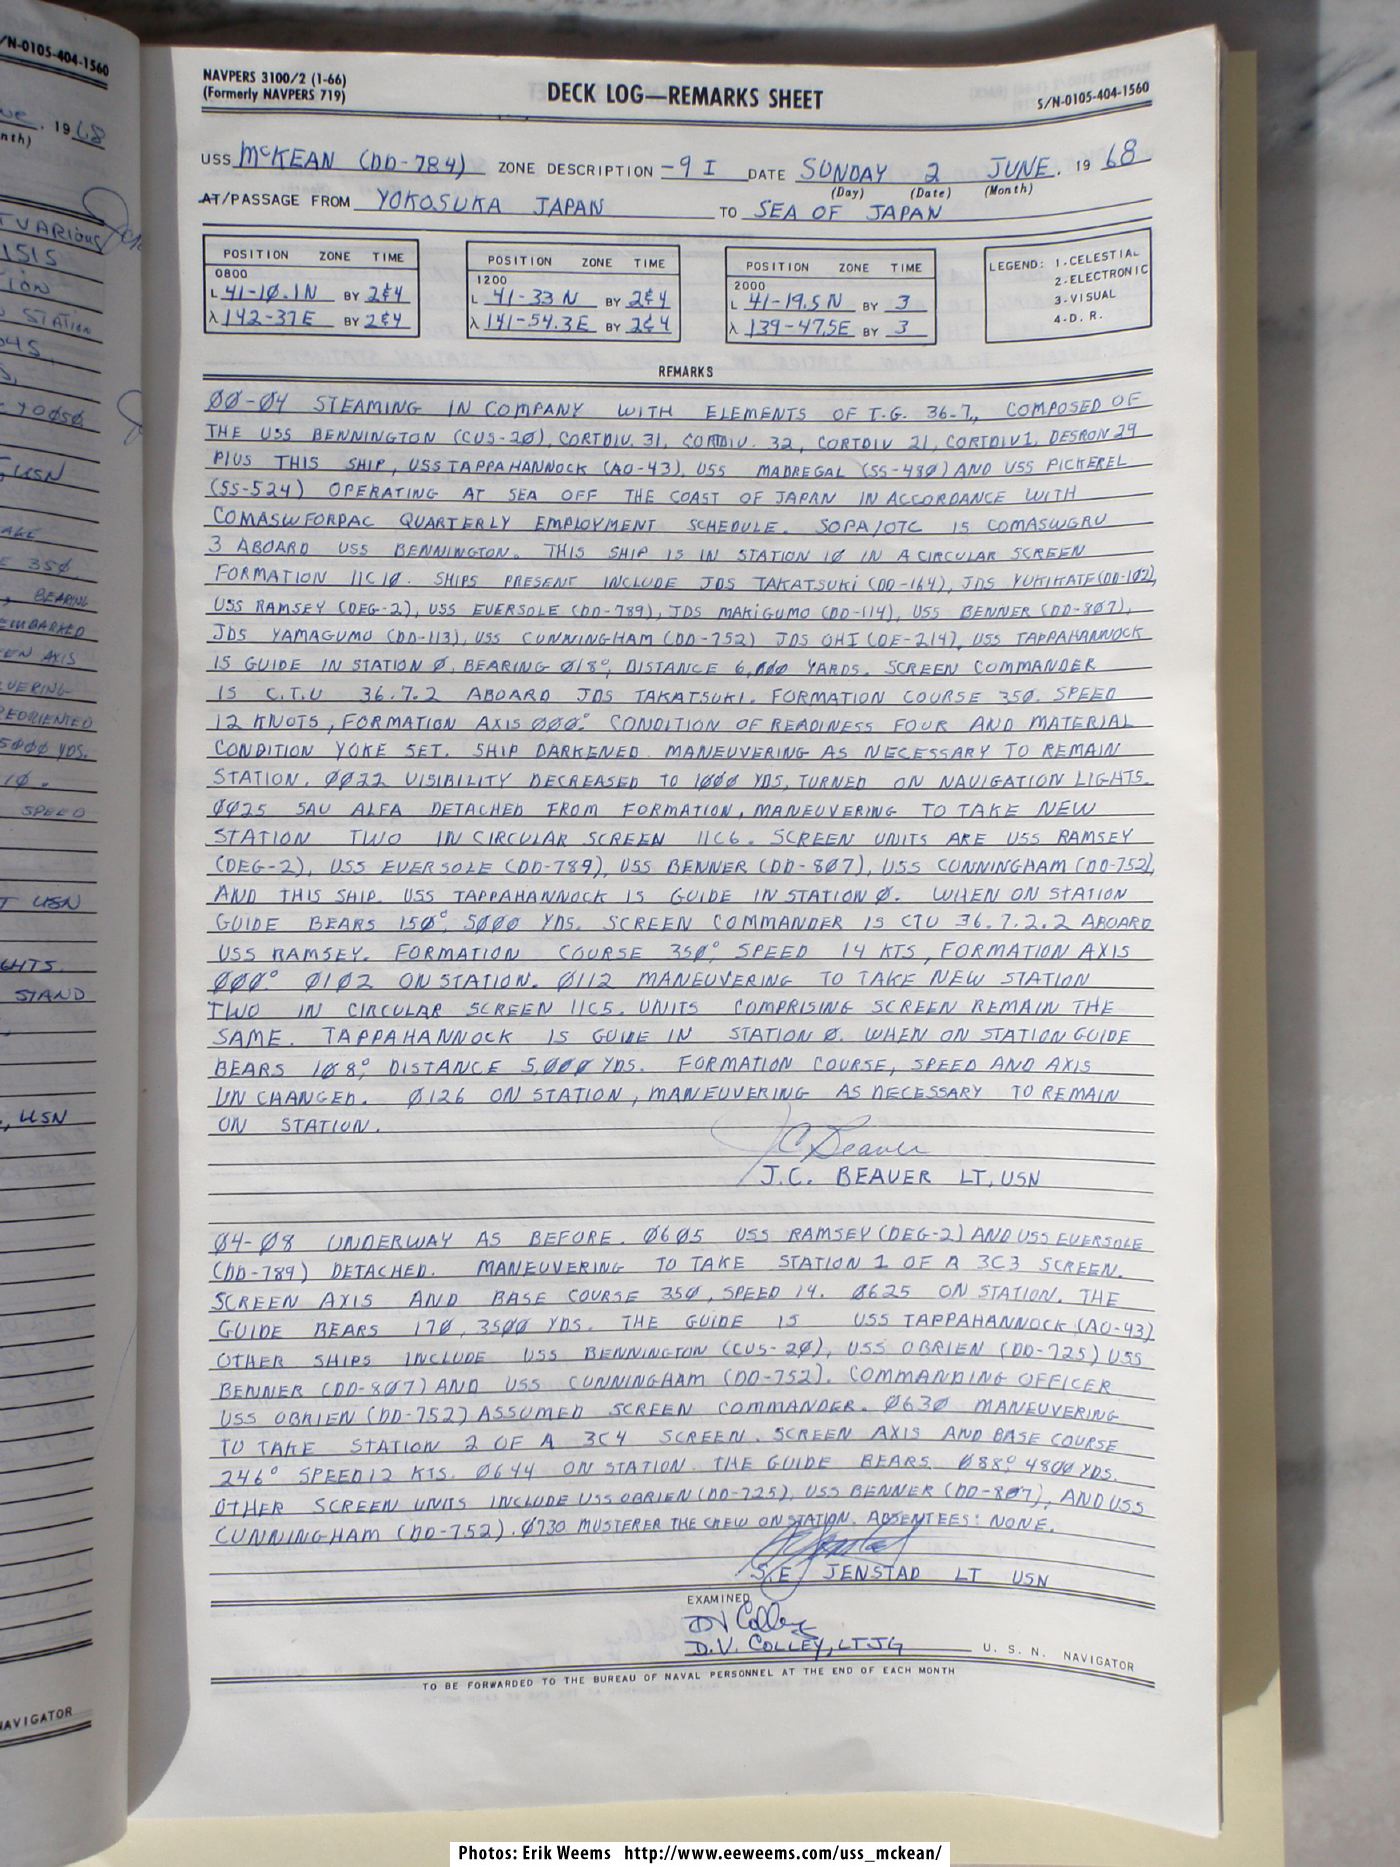 /N-0105-404-1560
. 1968
nth)
T VARIOUS
1515
TION
STATION
045
YØØ5Ø
, USN
E 35Ø,
, BEARING
EMBARKED
EN AXIS
UVERING
REORIENTED
5ØØØ YDS.
1Ø.
SPEED
T USN
GHTS.
STAND
, USN
NAVIGATOR
NAVPERS 3100/2 (1-66)
(Formerly NAVPERS 719)
DECK LOG—REMARKS SHEET
S/N-0105-404-1560
USS McKEAN (DD-784) ZONE DESCRIPTION -9 I DATE SUNDAY 2 JUNE. 1968
(Day) (Date) (Month)
AT/PASSAGE FROM YOKOSUKA JAPAN TO SEA OF JAPAN
POSITION ZONE TIME
0800
L 41-1Ø.1N BY 2&4
λ 142-37E BY 2&4
POSITION ZONE TIME
1200
L 41-33 N BY 2&4
λ 141-54.3E BY 2&4
POSITION ZONE TIME
2000
L 41-19.5N BY 3
λ 139-47.5E BY 3
LEGEND: 1.CELESTIAL
2.ELECTRONIC
3.VISUAL
4.D. R.
REMARKS
ØØ-Ø4 STEAMING IN COMPANY WITH ELEMENTS OF T.G. 36.7, COMPOSED OF
THE USS BENNINGTON (CUS-2Ø), CORTDIV. 31, CORTDIV. 32, CORTDIV 21, CORTDIV1, DESRON 29
PLUS THIS SHIP, USS TAPPAHANNOCK (AO-43), USS MADREGAL (SS-48Ø) AND USS PICKEREL
(SS-524) OPERATING AT SEA OFF THE COAST OF JAPAN IN ACCORDANCE WITH
COMASWFORPAC QUARTERLY EMPLOYMENT SCHEDULE. SOPA/OTC IS COMASWGRU
3 ABOARD USS BENNINGTON. THIS SHIP IS IN STATION 1Ø IN A CIRCULAR SCREEN
FORMATION 11C1Ø. SHIPS PRESENT INCLUDE JDS TAKATSUKI (DD-164), JDS YUKIKAZE (DD-1Ø2),
USS RAMSEY (DEG-2), USS EVERSOLE (DD-789), JDS MAKIGUMO (DD-114), USS BENNER (DD-8Ø7),
JDS YAMAGUMO (DD-113), USS CUNNINGHAM (DD-752) JDS OHI (DE-214), USS TAPPAHANNOCK
IS GUIDE IN STATION Ø, BEARING Ø18°, DISTANCE 6,ØØØ YARDS. SCREEN COMMANDER
IS C.T.U 36.7.2 ABOARD JDS TAKATSUKI. FORMATION COURSE 35Ø. SPEED
12 KNOTS, FORMATION AXIS ØØØ°. CONDITION OF READINESS FOUR AND MATERIAL
CONDITION YOKE SET. SHIP DARKENED. MANEUVERING AS NECESSARY TO REMAIN
STATION. ØØ22 VISIBILITY DECREASED TO 1ØØØ YDS, TURNED ON NAVIGATION LIGHTS.
ØØ25 SAU ALFA DETACHED FROM FORMATION, MANEUVERING TO TAKE NEW
STATION TWO IN CIRCULAR SCREEN 11C6. SCREEN UNITS ARE USS RAMSEY
(DEG-2), USS EVERSOLE (DD-789), USS BENNER (DD-8Ø7), USS CUNNINGHAM (DD-752),
AND THIS SHIP. USS TAPPAHANNOCK IS GUIDE IN STATION Ø. WHEN ON STATION
GUIDE BEARS 15Ø°, 5ØØØ YDS. SCREEN COMMANDER IS CTU 36.7.2.2 ABOARD
USS RAMSEY. FORMATION COURSE 35Ø° SPEED 14 KTS, FORMATION AXIS
ØØØ° Ø1Ø2 ON STATION. Ø112 MANEUVERING TO TAKE NEW STATION
TWO IN CIRCULAR SCREEN 11C5. UNITS COMPRISING SCREEN REMAIN THE
SAME. TAPPAHANNOCK IS GUIDE IN STATION Ø. WHEN ON STATION GUIDE
BEARS 1Ø8°, DISTANCE 5,ØØØ YDS. FORMATION COURSE, SPEED AND AXIS
UNCHANGED. Ø126 ON STATION, MANEUVERING AS NECESSARY TO REMAIN
ON STATION.
J C Beaver
J.C. BEAVER LT, USN
Ø4-Ø8 UNDERWAY AS BEFORE. Ø6Ø5 USS RAMSEY (DEG-2) AND USS EVERSOLE
(DD-789) DETACHED. MANEUVERING TO TAKE STATION 1 OF A 3C3 SCREEN.
SCREEN AXIS AND BASE COURSE 35Ø, SPEED 14. Ø625 ON STATION. THE
GUIDE BEARS 17Ø, 35ØØ YDS. THE GUIDE IS USS TAPPAHANNOCK (AO-43)
OTHER SHIPS INCLUDE USS BENNINGTON (CUS-2Ø), USS OBRIEN (DD-725) USS
BENNER (DD-8Ø7) AND USS CUNNINGHAM (DD-752). COMMANDING OFFICER
USS OBRIEN (DD-752) ASSUMED SCREEN COMMANDER. Ø63Ø MANEUVERING
TO TAKE STATION 2 OF A 3C4 SCREEN. SCREEN AXIS AND BASE COURSE
246° SPEED 12 KTS. Ø644 ON STATION. THE GUIDE BEARS Ø88°, 48ØØ YDS.
OTHER SCREEN UNITS INCLUDE USS OBRIEN (DD-725), USS BENNER (DD-8Ø7), AND USS
CUNNINGHAM (DD-752). Ø730 MUSTERER THE CREW ON STATION. ABSENTEES: NONE.
S.E. JENSTAD LT USN
EXAMINED
DV Colley
D.V. COLLEY, LTJG U. S. N. NAVIGATOR
TO BE FORWARDED TO THE BUREAU OF NAVAL PERSONNEL AT THE END OF EACH MONTH
Photos: Erik Weems http://www.eeweems.com/uss_mckean/